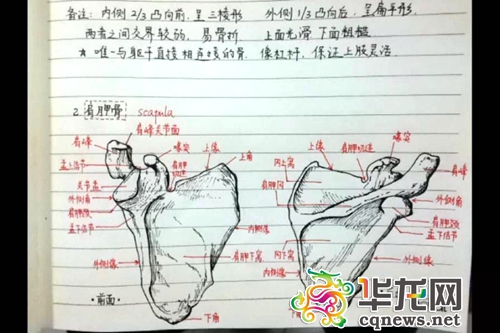 备注：内侧2/3凸向前，呈三棱形 外侧1/3凸向后，呈扁平形，
两者之间交界较弱，易骨折 上面光滑 下面粗糙
* 唯一与躯干直接相连接的骨，像杠杆，保证上肢灵活
2. 肩胛骨 scapula
肩峰关节面
肩峰
喙突
肩胛切迹
上缘
上角
盂上结节
关节盂
外侧角
肩胛颈
盂下结节
外侧缘
内侧缘
肩胛下窝
下角
·前面·
上缘
肩胛切迹
喙突
肩峰
冈上窝
肩胛冈
外侧角
肩胛颈
盂下结节
冈下窝
内侧缘
外侧缘
华龙网
cqnews.net